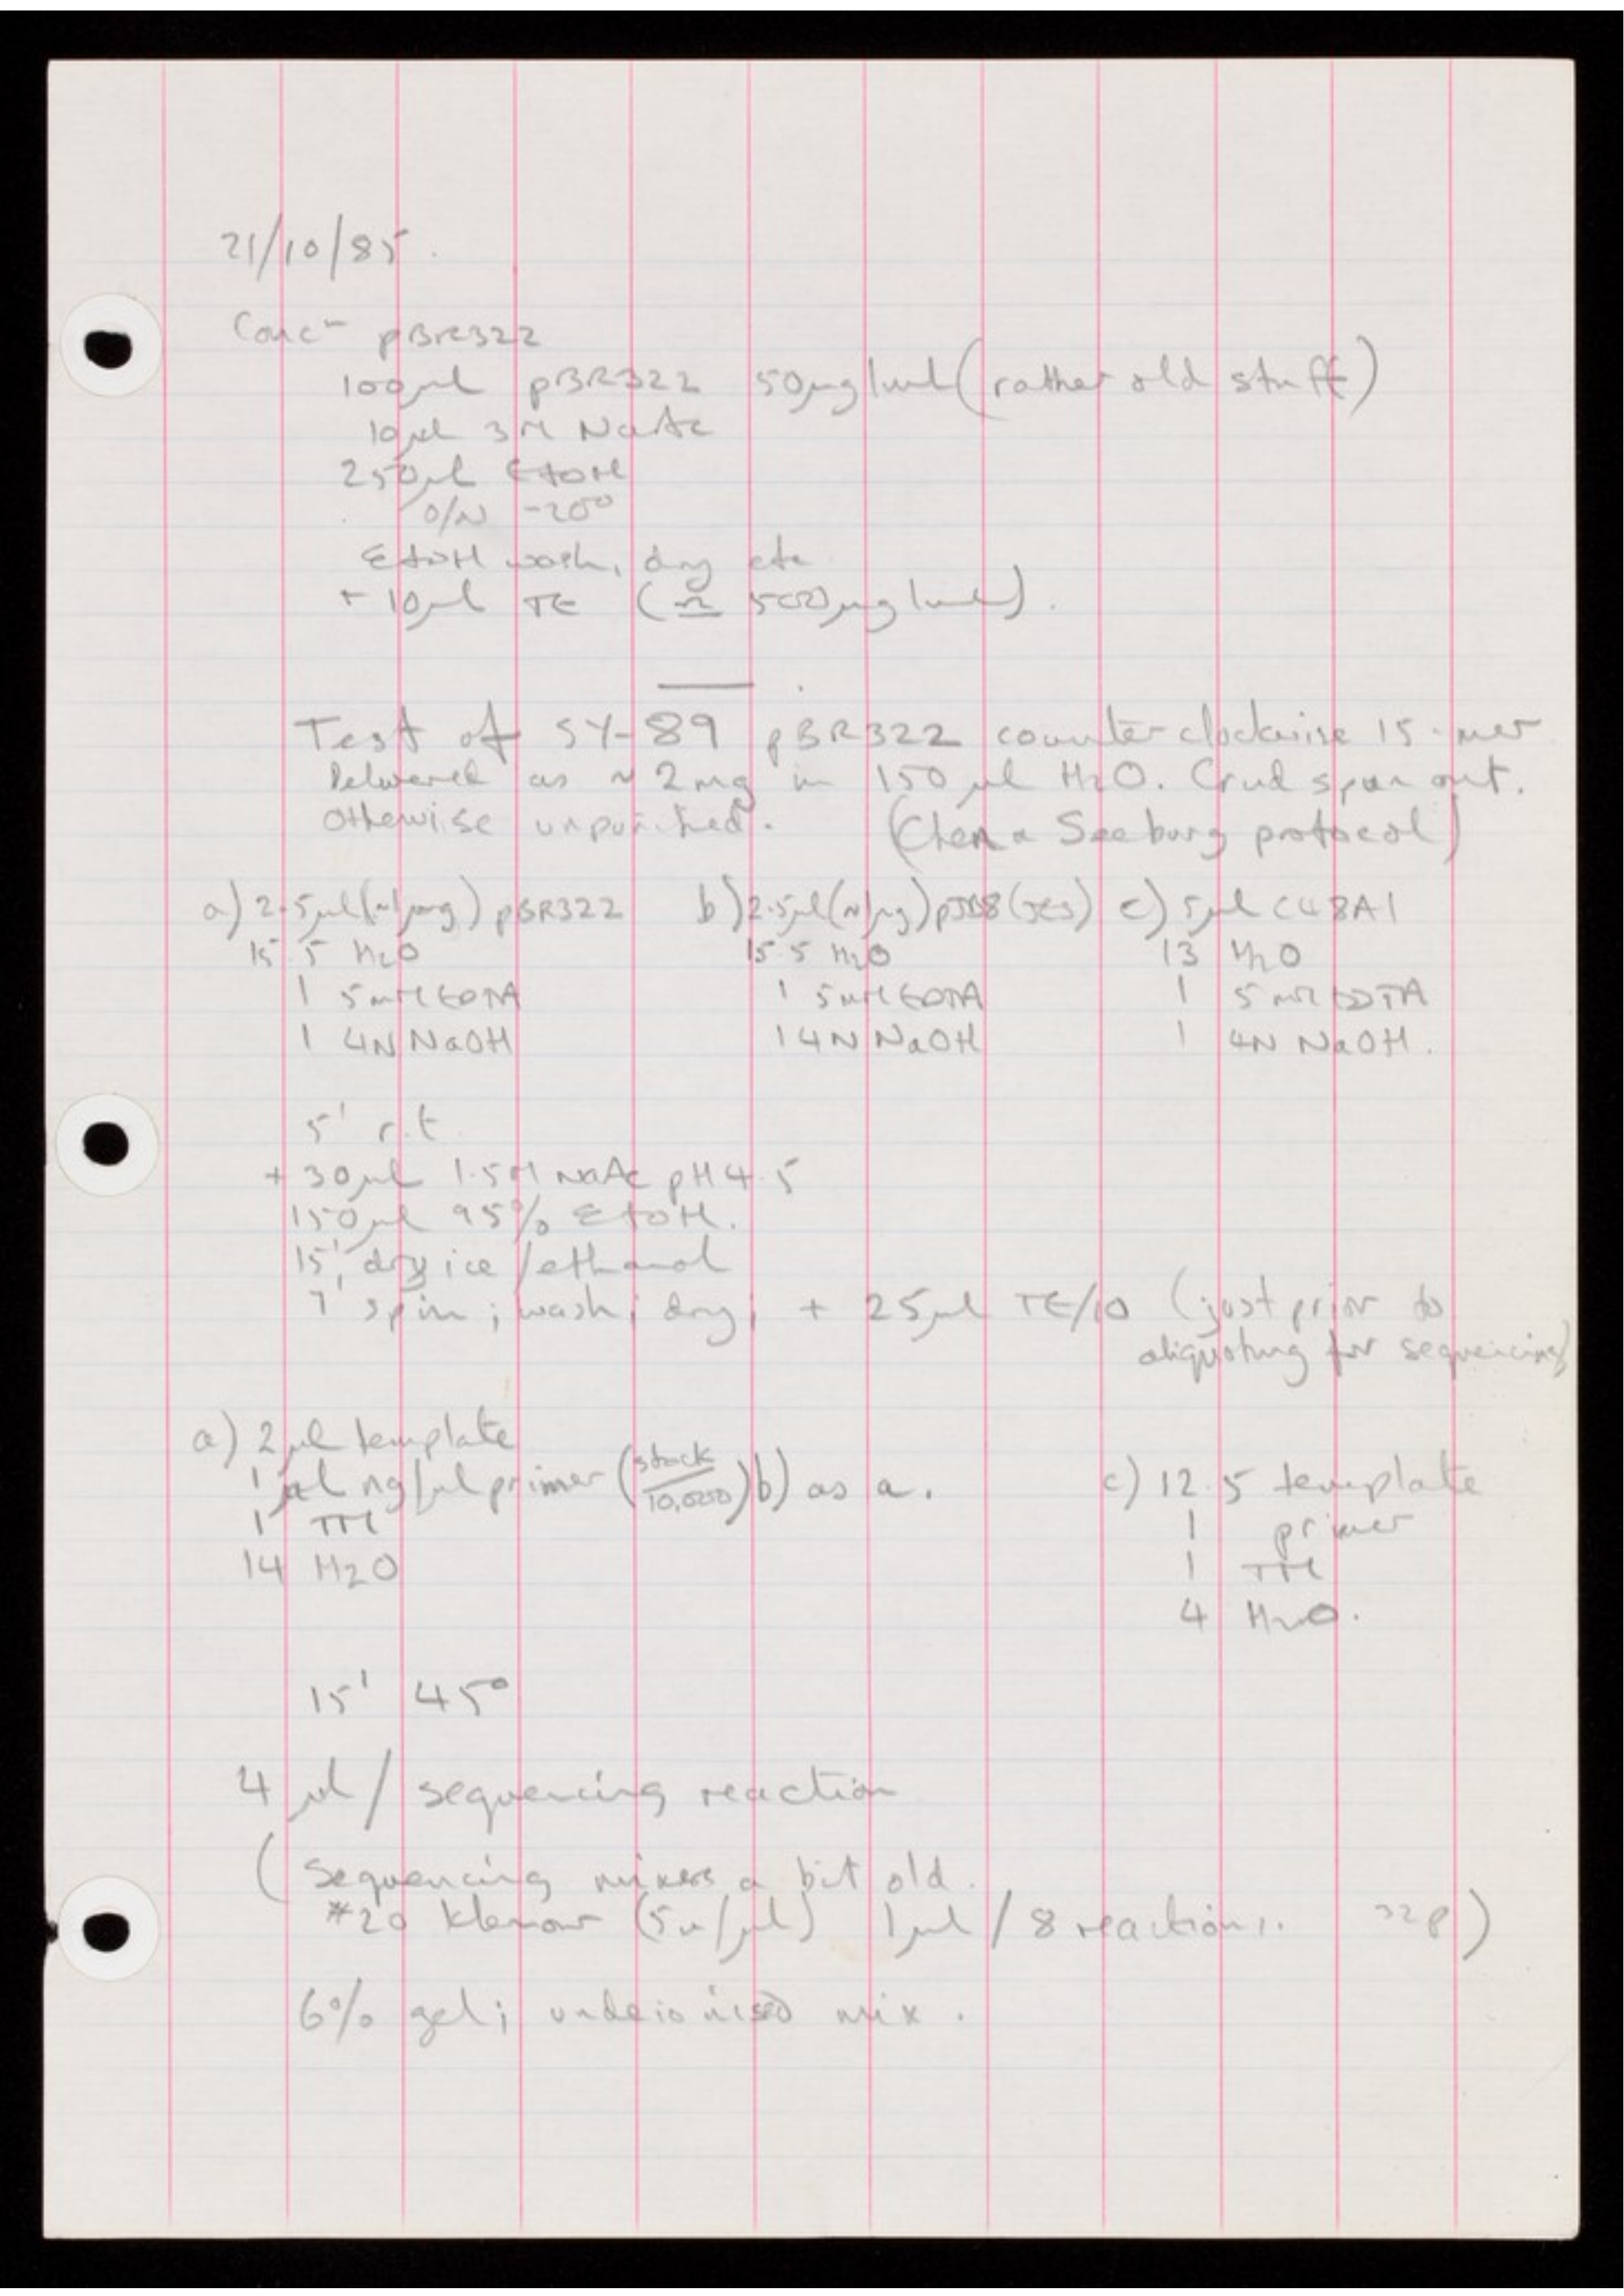 21/10/85.
Concn pBR322
100μl pBR322 50μg/ml (rather old stuff)
10μl 3M NaAc
250μl EtOH
O/N -20°
EtOH wash, dry etc
+ 10μl TE (≏ 500μg/ml).
Test of SY-89 pBR322 counterclockwise 15-mer
Delivered as ~ 2mg in 150μl H2O. Crud spun out.
Otherwise unpurified. (Chen & Seeburg protocol)
a) 2.5μl (~1μg) pBR322 b) 2.5μl (~1μg) pJB8 (JES) c) 5μl C48A1
15.5 H2O 15.5 H2O 13 H2O
1 5mM EDTA 1 5mM EDTA 1 5mM EDTA
1 4N NaOH 1 4N NaOH 1 4N NaOH.
5' r.t.
+ 30μl 1.5M NaAc pH 4.5
150μl 95% EtOH.
15' dry ice/ethanol
7' spin; wash; dry; + 25μl TE/10 (just prior to
aliquoting for sequencing)
a) 2μl template
1 ng/μl primer (stock/10,000) b) as a. c) 12.5 template
1 TM 1 primer
14 H2O 1 TM
4 H2O.
15' 45°
4 μl/sequencing reaction
(Sequencing mixes a bit old.
#20 Klenow (5u/μl) 1μl/8 reactions. 32P)
6% gel; undeionised mix.